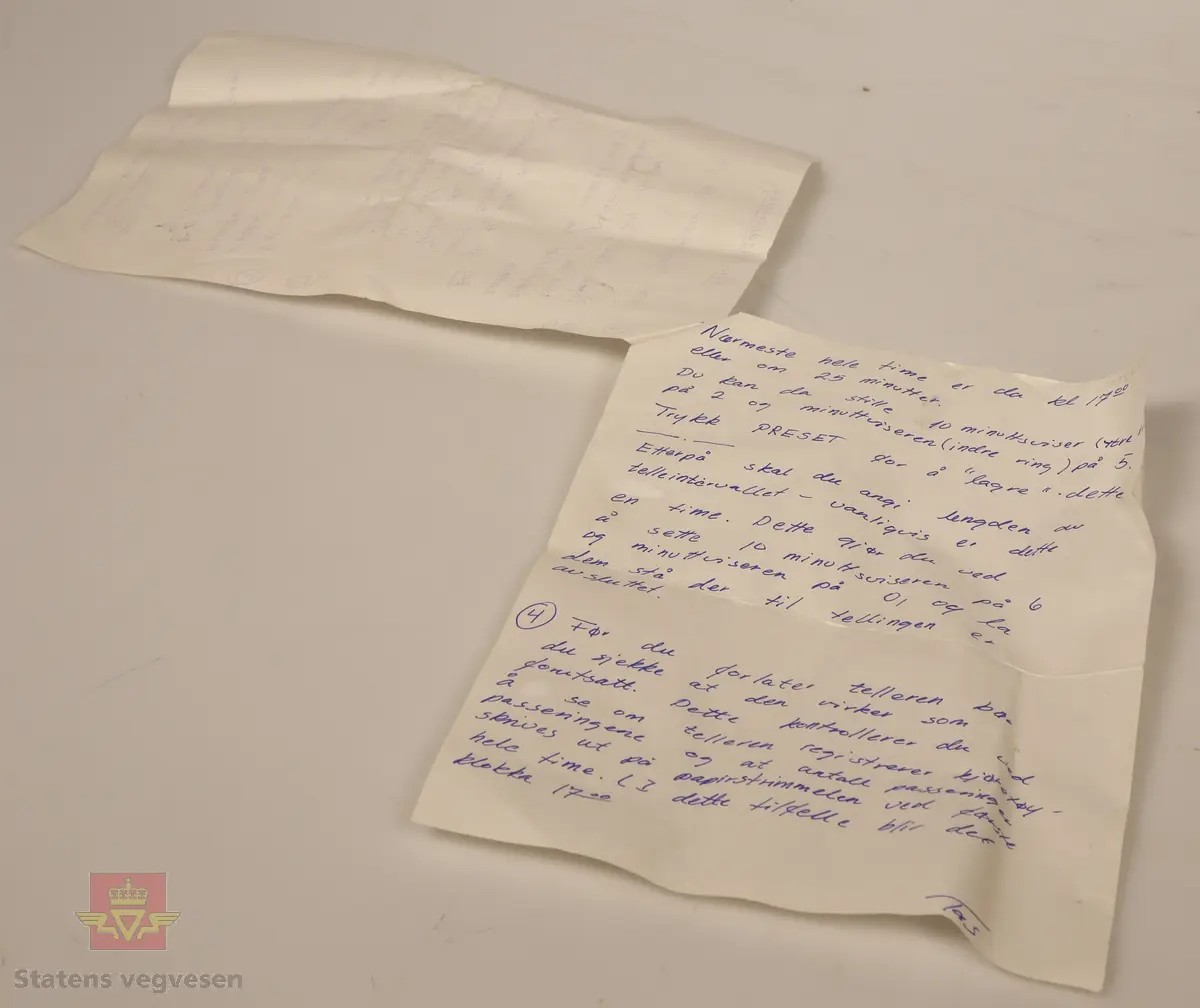 Nærmeste hele time er da kl 17⁰⁰
eller om 25 minutter.
Du kan da stille 10 minuttsviser (ytre
på 2 og minuttviseren (indre ring) på 5.
Trykk PRESET for å "lagre" dette
Etterpå skal du angi lengden av
telleintervallet - vanligvis er dette
en time. Dette gjør du ved
å sette 10 minuttsviseren på 6
og minuttviseren på 0, og la
dem stå der til tellingen er
avsluttet.
④ Før du forlater telleren bør
du sjekke at den virker som
forutsatt. Dette kontrollerer du ved
å se om telleren registrerer kjøretøy-
passeringene og at antall passeringer
skrives ut på papirstrimmelen ved første
hele time. (I dette tilfelle blir det
klokka 17⁰⁰
Statens vegvesen